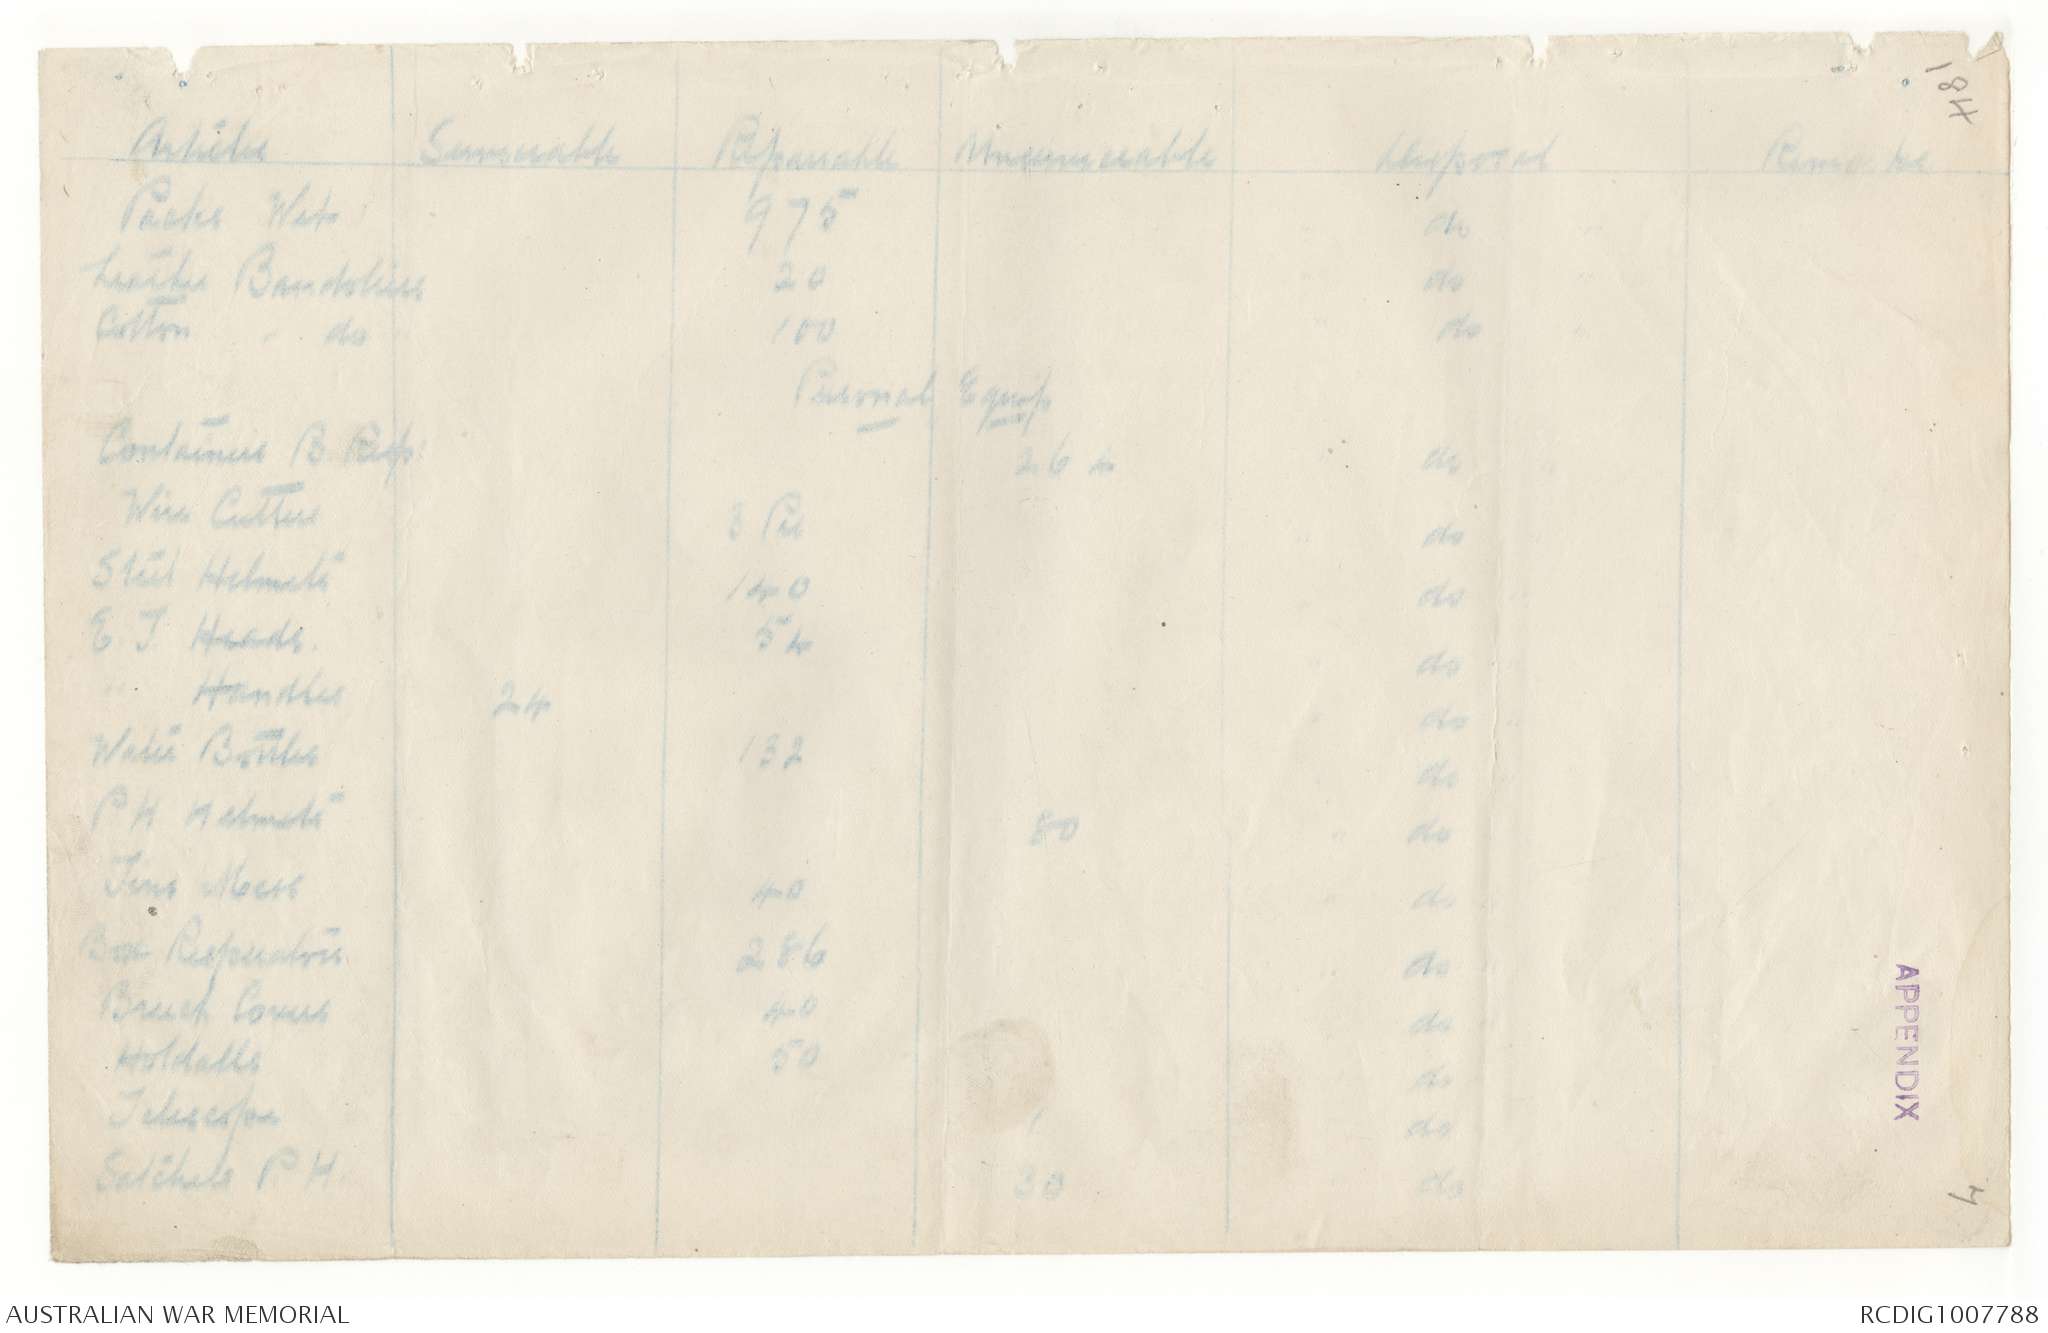 184
Articles Serviceable Repairable Unserviceable Disposal Remarks
Packs Web 975 " do "
Leather Bandoliers 20 " do "
Cotton " do 100 " do "
Personal Equip
Containers B. Resp: 264 " do "
Wire Cutters 3 Prs " do "
Steel Helmets 140 " do "
E. T. Heads. 54 " do "
" Handles 24 " do "
Water Bottles 132 " do "
P H Helmets 80 " do
Tins Mess 40 " do "
Box Respirators 286 " do
Breech Covers 40 do
Holdalls 50 do
Telescope 1 do
Satchels P. H. 30 do
APPENDIX
4
AUSTRALIAN WAR MEMORIAL RCDIG1007788